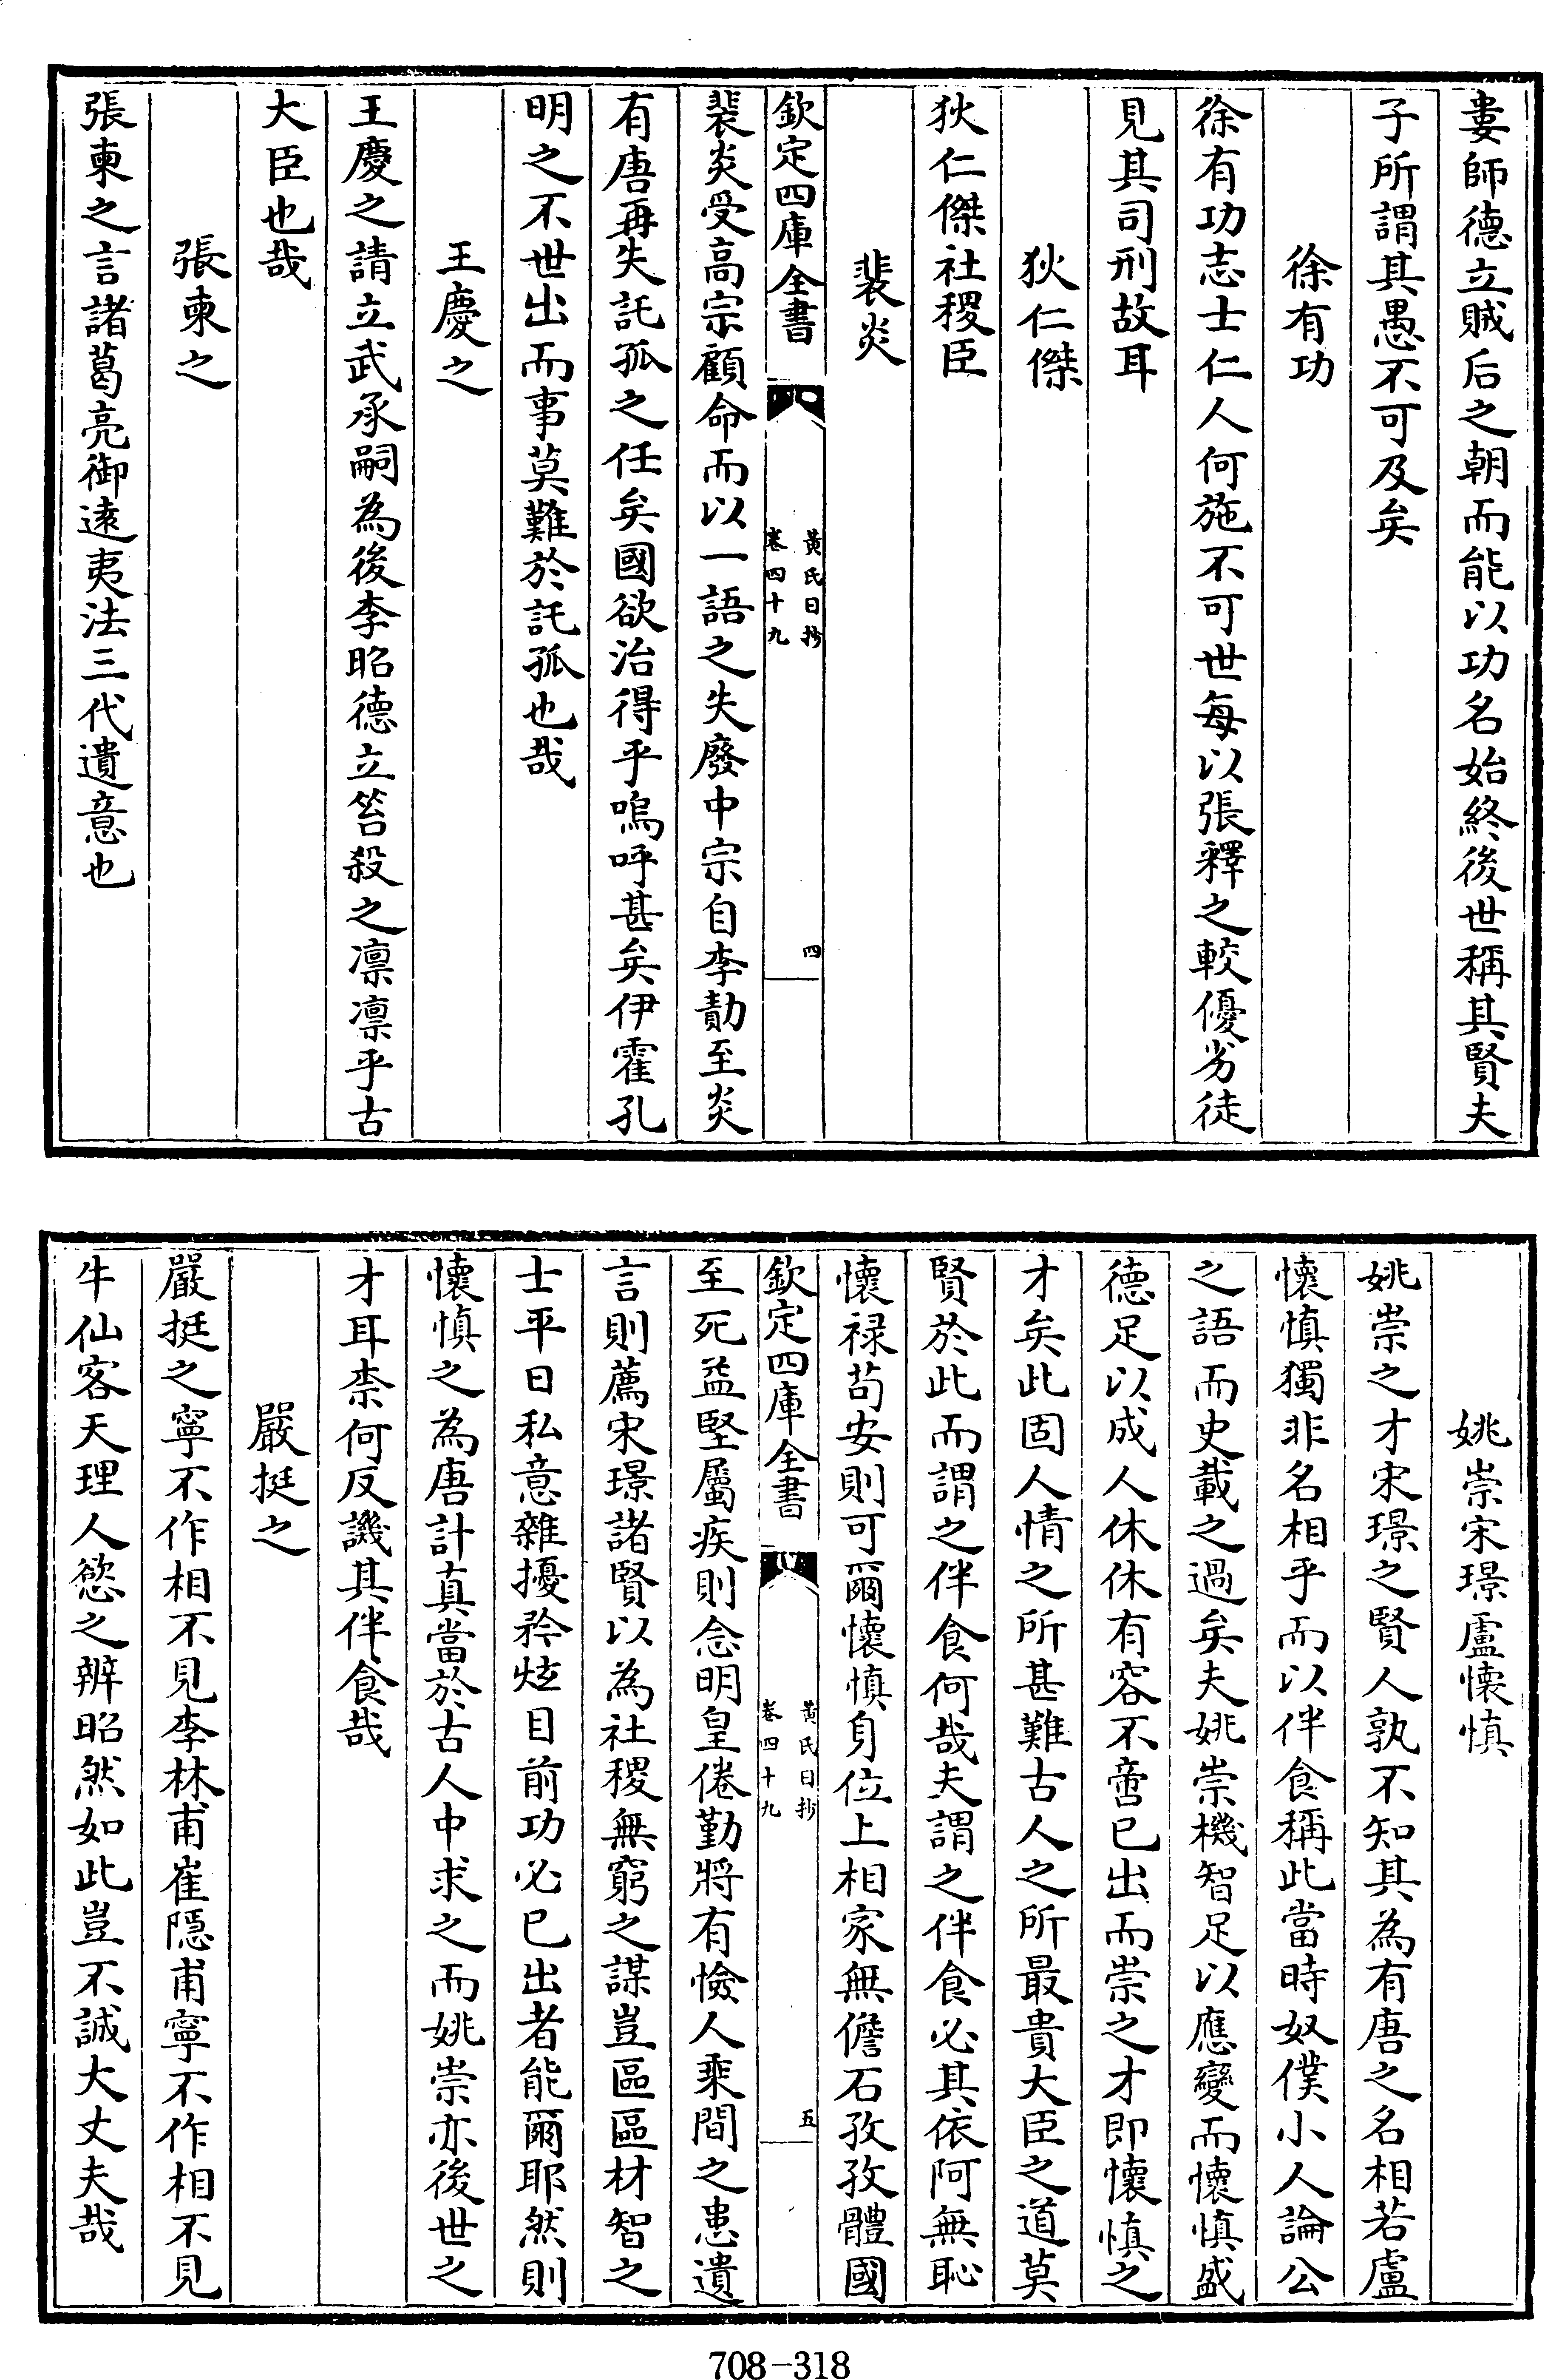 婁師德立賊后之朝而能以功名始終後世稱其賢夫
子所謂其愚不可及矣
徐有功
徐有功志士仁人何施不可世每以張釋之較優劣徒
見其司刑故耳
狄仁傑
狄仁傑社稷臣
裴炎
欽定四庫全書
黃氏日抄
卷四十九
四
裴炎受高宗顧命而以一語之失廢中宗自李勣至炎
有唐再失託孤之任矣國欲治得乎嗚呼甚矣伊霍孔
明之不世出而事莫難於託孤也哉
王慶之
王慶之請立武承嗣為後李昭德立笞殺之凛凛乎古
大臣也哉
張柬之
張柬之言諸葛亮御逺夷法三代遺意也
姚崇宋璟盧懷慎
姚崇之才宋璟之賢人孰不知其為有唐之名相若盧
懷慎獨非名相乎而以伴食稱此當時奴僕小人論公
之語而史載之過矣夫姚崇機智足以應變而懷慎盛
德足以成人休休有容不啻已出而崇之才即懷慎之
才矣此固人情之所甚難古人之所最貴大臣之道莫
賢於此而謂之伴食何哉夫謂之伴食必其依阿無恥
懷祿苟安則可爾懷慎身位上相家無儋石孜孜體國
欽定四庫全書
黃氏日抄
卷四十九
五
至死益堅屬疾則念明皇倦勤將有憸人乘間之患遺
言則薦宋璟諸賢以為社稷無窮之謀豈區區材智之
士平日私意雜擾矜炫目前功必已出者能爾耶然則
懷慎之為唐計真當於古人中求之而姚崇亦後世之
才耳柰何反譏其伴食哉
嚴挺之
嚴挺之寧不作相不見李林甫崔隱甫寧不作相不見
牛仙客天理人慾之辨昭然如此豈不誠大丈夫哉
708-318